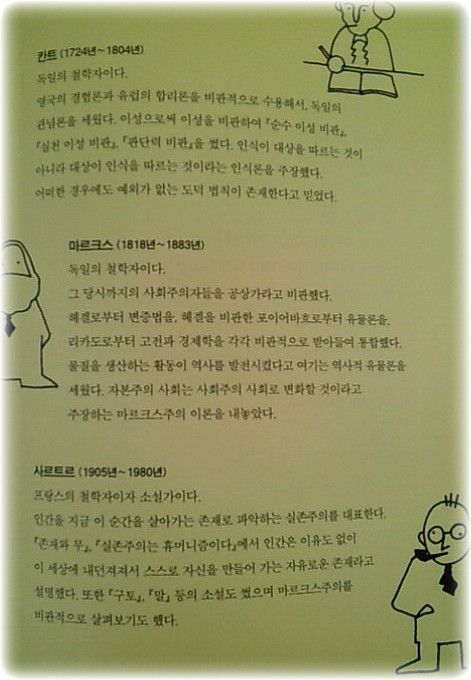 칸트 (1724년~1804년)
독일의 철학자이다.
영국의 경험론과 유럽의 합리론을 비판적으로 수용해서, 독일의
관념론을 세웠다. 이성으로써 이성을 비판하여 『순수 이성 비판』,
『실천 이성 비판』, 『판단력 비판』을 썼다. 인식이 대상을 따르는 것이
아니라 대상이 인식을 따르는 것이라는 인식론을 주장했다.
어떠한 경우에도 예외가 없는 도덕 법칙이 존재한다고 믿었다.
마르크스 (1818년~1883년)
독일의 철학자이다.
그 당시까지의 사회주의자들을 공상가라고 비판했다.
헤겔로부터 변증법을, 헤겔을 비판한 포이어바흐로부터 유물론을,
리카도로부터 고전파 경제학을 각각 비판적으로 받아들여 통합했다.
물질을 생산하는 활동이 역사를 발전시켰다고 여기는 역사적 유물론을
세웠다. 자본주의 사회는 사회주의 사회로 변화할 것이라고
주장하는 마르크스주의 이론을 내놓았다.
사르트르 (1905년~1980년)
프랑스의 철학자이자 소설가이다.
인간을 지금 이 순간을 살아가는 존재로 파악하는 실존주의를 대표한다.
『존재와 무』, 『실존주의는 휴머니즘이다』에서 인간은 이유도 없이
이 세상에 내던져져서 스스로 자신을 만들어 가는 자유로운 존재라고
설명했다. 또한 『구토』, 『말』 등의 소설도 썼으며 마르크스주의를
비판적으로 살펴보기도 했다.